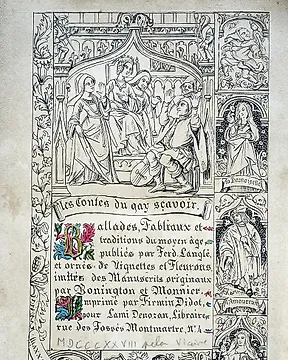 les Contes du gay sçavoir.
Ballades, Fabliaux et
traditions du moyen âge
publiés par Ferd. Langlé
et ornés de Vignettes et Fleurons
imités des Manuscrits originaux
par Bonington et Monnier.
imprimé par Firmin Didot.
pour Lami Denozan, Libraire
rue des Fossés Montmartre, Nº 4
MDCCCXXVIII selon Vicaire